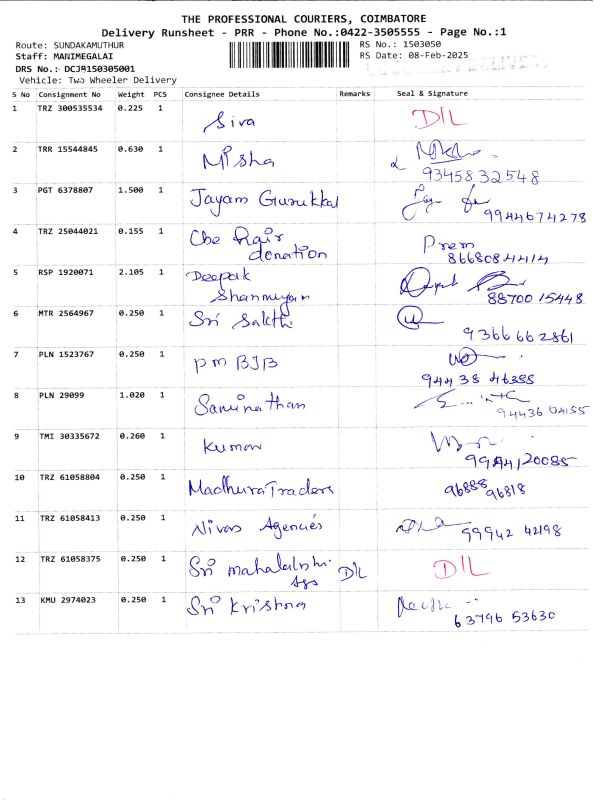 THE PROFESSIONAL COURIERS, COIMBATORE
Delivery Runsheet - PRR - Phone No.:0422-3505555 - Page No.:1
Route: SUNDAKAMUTHUR RS No.: 1503050
Staff: MANIMEGALAI RS Date: 08-Feb-2025
DRS No.: DCJB150305001
Vehicle: Two Wheeler Delivery
S No Consignment No Weight PCS Consignee Details Remarks Seal & Signature
1 TRZ 300535534 0.225 1 Siva D/L
2 TRR 15544845 0.630 1 Misha
9345832548
3 PGT 6378807 1.500 1 Jayam Gurukkal
9944674278
4 TRZ 25044021 0.155 1 Cbe hair Prem
donation 8668084414
5 RSP 1920071 2.105 1 Deepak
Shanmugam 88700 15448
6 MTR 2564967 0.250 1 Sri Sakthi
9366662861
7 PLN 1523767 0.250 1 PM BJB
94438 46385
8 PLN 29099 1.020 1 Saminathan
94436 04155
9 TMI 30335672 0.260 1 Kumar
9994120085
10 TRZ 61058804 0.250 1 Madhura Traders 96888 96818
11 TRZ 61058413 0.250 1 Nivas Agencies 99942 42198
12 TRZ 61058375 0.250 1 Sri mahalakshmi D/L D/L
Ags
13 KMU 2974023 0.250 1 Sri Krishna
63796 53630